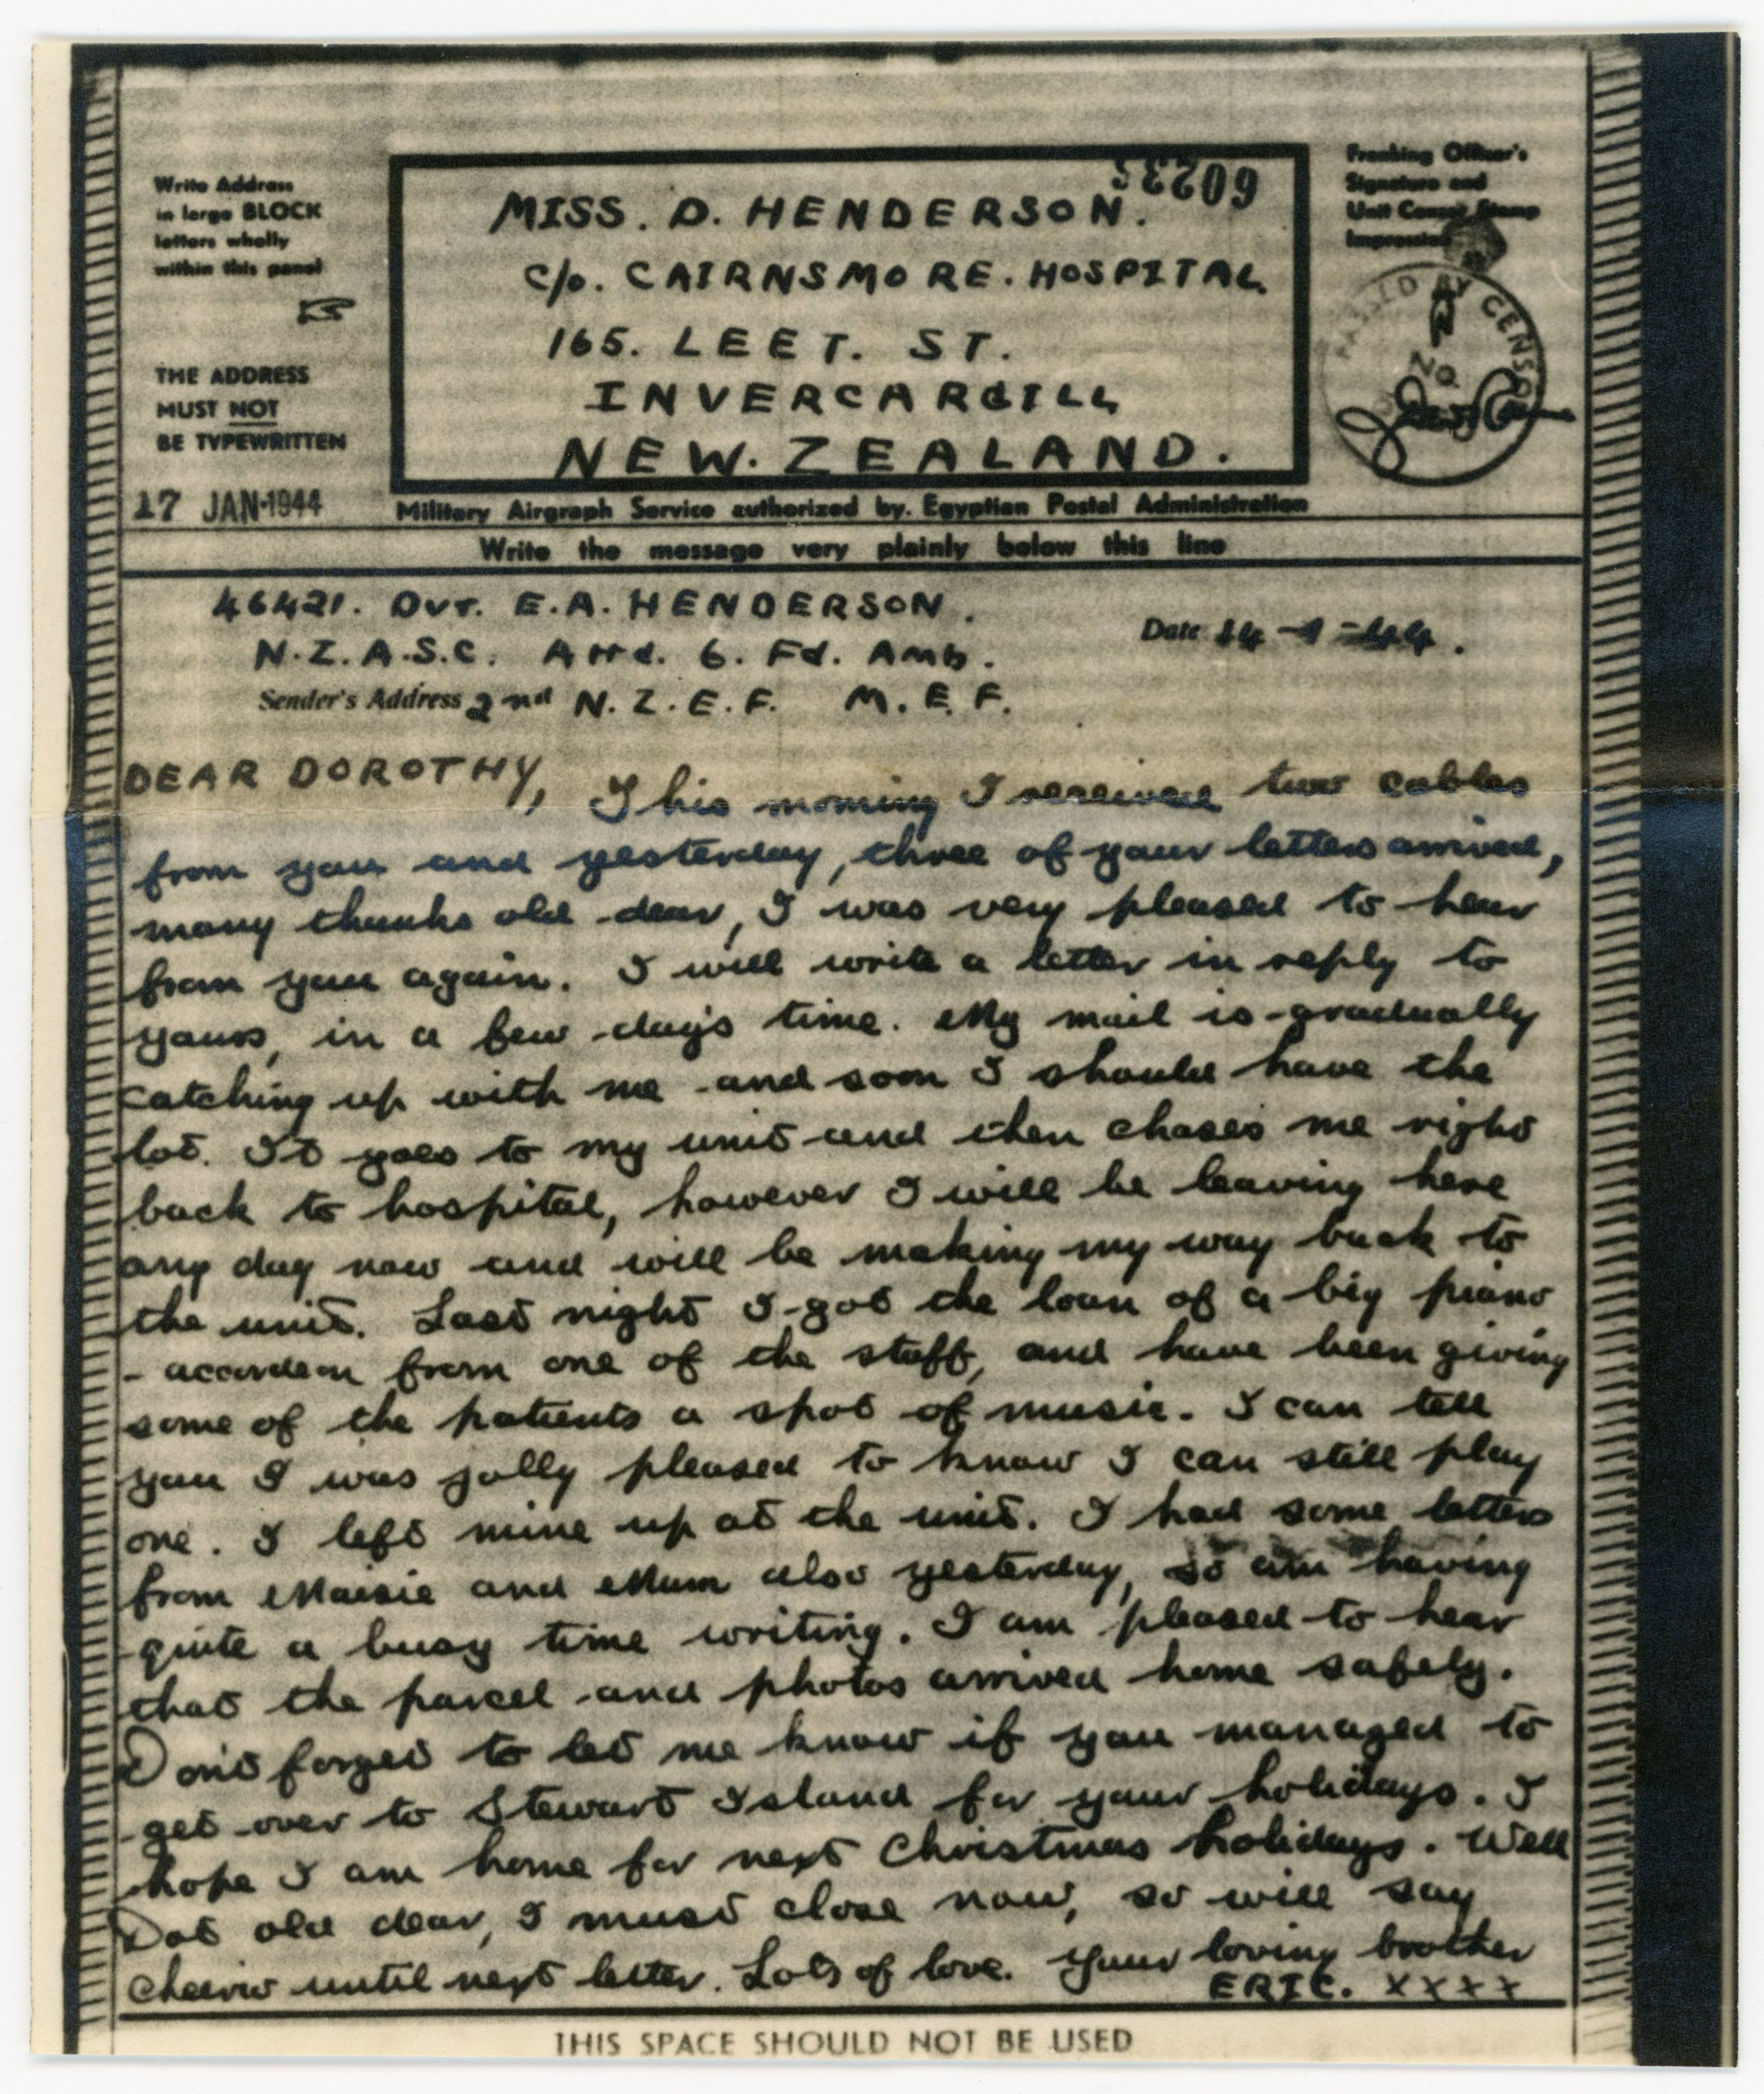 Write Address
in large BLOCK
letters wholly
within this panel
THE ADDRESS
MUST NOT
BE TYPEWRITTEN
17 JAN 1944
60235
MISS. D. HENDERSON.
c/o. CAIRNSMORE. HOSPITAL
165. LEET. ST.
INVERCARGILL
NEW. ZEALAND.
Franking Officer's
Signature and
Unit Censor Stamp
Impression
PASSED BY CENSOR
No
Military Airgraph Service authorized by. Egyptian Postal Administration
Write the message very plainly below this line
46421. Dvr. E.A. HENDERSON.
N.Z.A.S.C. Attd. 6. Fd. Amb.
Date 14-1-44.
Sender's Address 2nd N.Z.E.F. M.E.F.
DEAR DOROTHY, This morning I received two cables
from you and yesterday, three of your letters arrived,
many thanks old dear, I was very pleased to hear
from you again. I will write a letter in reply to
yours, in a few day's time. My mail is gradually
catching up with me and soon I should have the
lot. It goes to my unit and then chases me right
back to hospital, however I will be leaving here
any day now and will be making my way back to
the unit. Last night I got the loan of a big piano
- accordean from one of the staff, and have been giving
some of the patients a spot of music. I can tell
you I was jolly pleased to know I can still play
one. I left mine up at the unit. I had some letters
from Maisie and Mum also yesterday, so am having
quite a busy time writing. I am pleased to hear
that the parcel and photos arrived home safely.
Don't forget to let me know if you managed to
get over to Stewart Island for your holidays. I
hope I am home for next Christmas holidays. Well
Dot old dear, I must close now, so will say
cheerio until next letter. Lots of love. Your loving brother
ERIC. XXXX
THIS SPACE SHOULD NOT BE USED